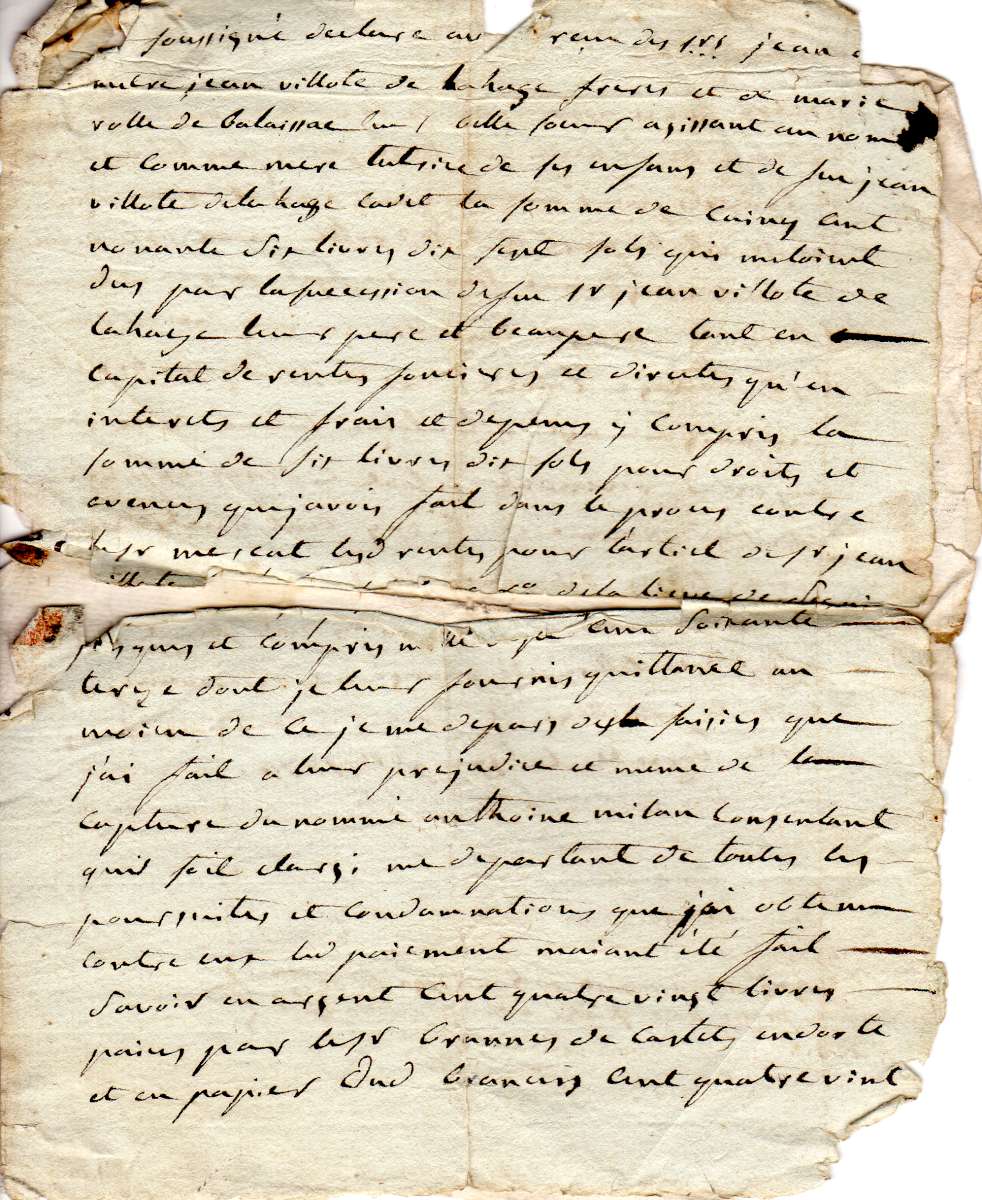 soussigné declare av reçu des srs jean
jean villote de lahage freres et de marie
rolle de balaissac leur belle soeur agissant au nom
et comme mere tutrice de ses enfans et de feu jean
villote delahage cadet la somme de cainq cent
nonante dix livres dix sept sols qui m'etoint
dus par la succession de feu sr jean villote de
lahage leur pere et beaupere tant en
capital de rentes foncieres et directes qu'en
interets et frais et depens y compris la
somme de six livres dix sols pour droits et
avences que javois fait dans le proces contre
le sr mescat lesd rentes pour l'articl de sr jean
de la
et compris cent soixante
treze dont je leur fournis quittance au
moien de ce je me depars des saisies que
j'ai fait a leur prejudice et meme de la
capture du nommé anthoine milan consentant
quil soit elargi me departant de toutes les
poursuites et condamnations que jai obtenu
contre eux led paiement maiant été fait
savoir en argent cent quatre vingt livres
paiees par le sr brannes de castets endorte
et en papier dud cent quatre vint